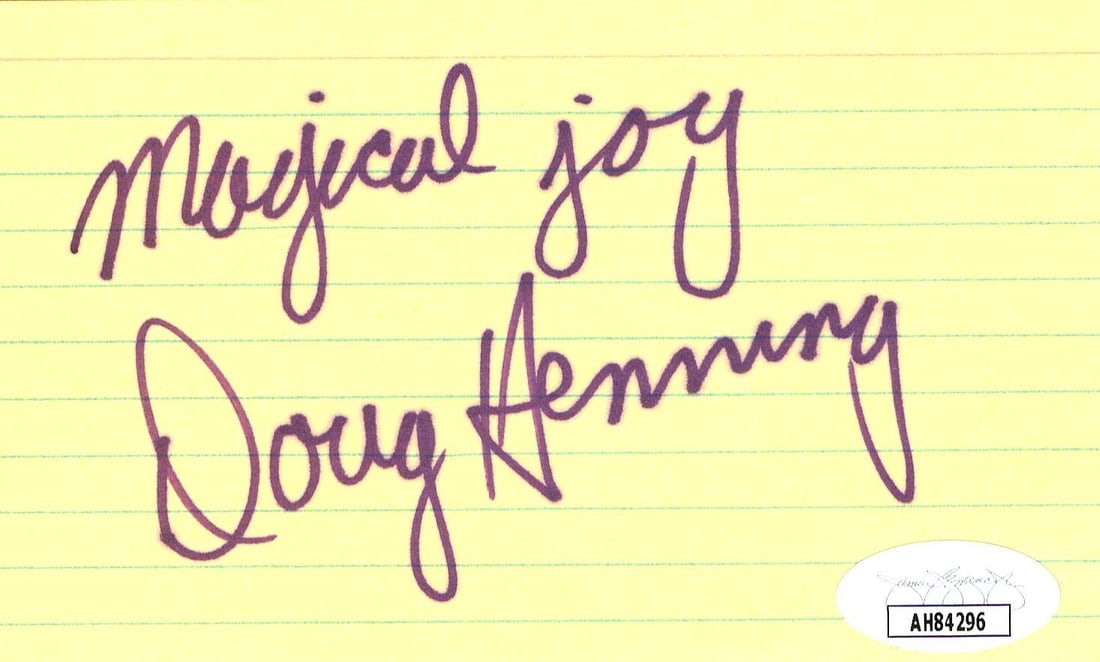 Magical joy
Doug Henning
AH84296